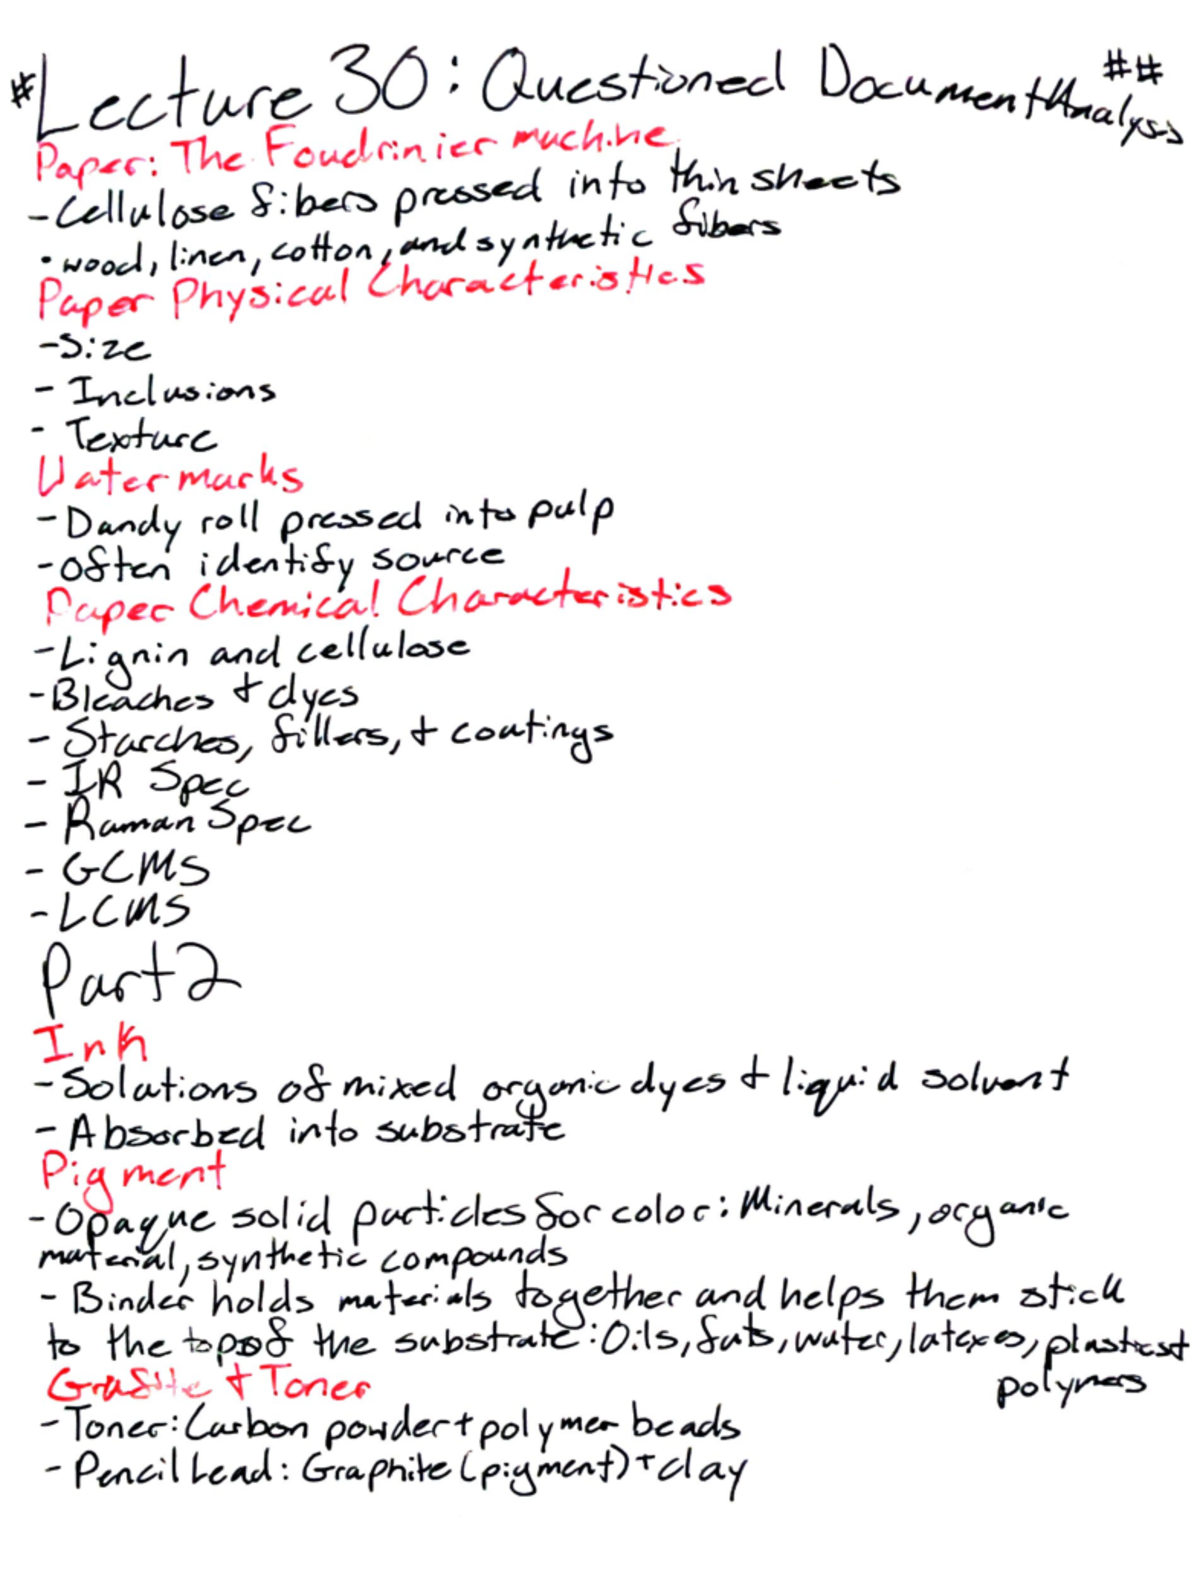 #Lecture 30: Questioned Document Analysis ##
Paper: The Foudrinier machine
-Cellulose fibers pressed into thin sheets
• wood, linen, cotton, and synthetic fibers
Paper Physical Characteristics
-Size
- Inclusions
- Texture
Watermarks
-Dandy roll pressed into pulp
-often identify source
Paper Chemical Characteristics
-Lignin and cellulose
-Bleaches + dyes
- Starches, fillers, + coatings
- IR Spec
- Raman Spec
- GCMS
-LCMS
Part 2
Ink
-Solutions of mixed organic dyes + liquid solvent
- Absorbed into substrate
Pigment
- Opaque solid particles for color: Minerals, organic
material, synthetic compounds
- Binder holds materials together and helps them stick
to the top of the substrate: Oils, fats, water, latexes, plastics +
polymers
Grafite + Toner
- Toner: Carbon powder + polymer beads
- Pencil Lead: Graphite (pigment) + clay